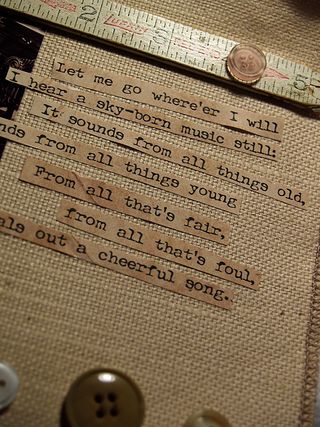 2
3
5
Let me go where'er I will
I hear a sky-born music still:
It sounds from all things old,
nds from all things young
From all that's fair,
from all that's foul,
als out a cheerful song.